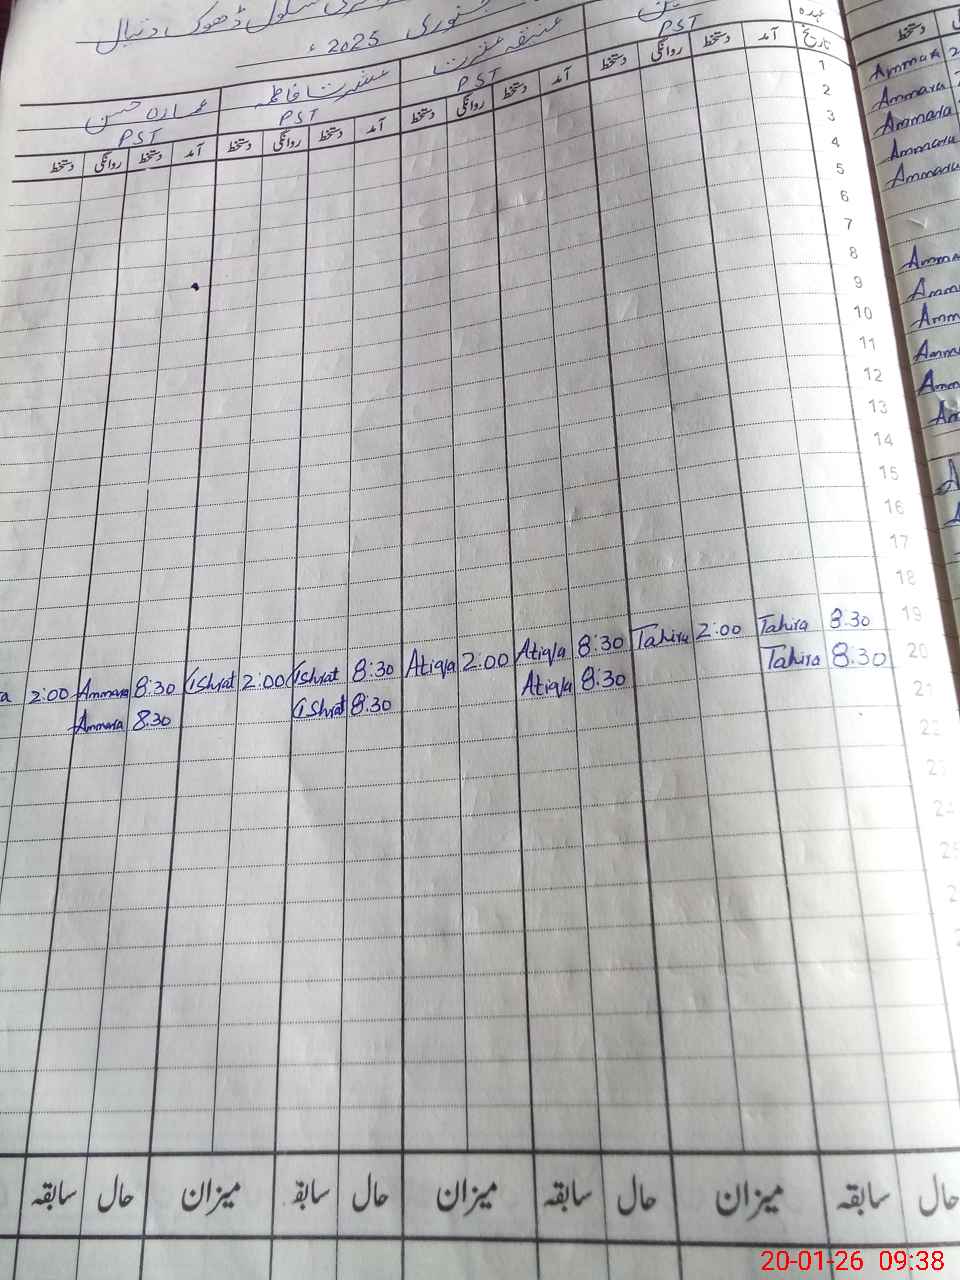 سکول ڈھوک دنبال
جنوری 2025ء
عہدہ
PST
عتیقہ عشرت
PST
عشرت فاطمہ
PST
عمارہ حسن
PST
تاریخ آمد دستخط روانگی دستخط آمد دستخط روانگی دستخط آمد دستخط روانگی دستخط آمد دستخط روانگی دستخط
دستخط
1
2
3
4
5
6
7
8
9
10
11
12
13
14
15
16
17
18
19
20
21
22
24
Ammara
Ammara
Ammara
Ammara
Ammara
2:00 Ammara 8:30 Ishrat 2:00 Ishrat 8:30 Atiqa 2:00 Atiqa 8:30 Tahira 2:00 Tahira 8:30
Ammara 8:30 Ishrat 8:30 Atiqa 8:30 Tahira 8:30
حال سابقہ میزان حال سابقہ میزان حال سابقہ میزان حال سابقہ
20-01-26 09:38